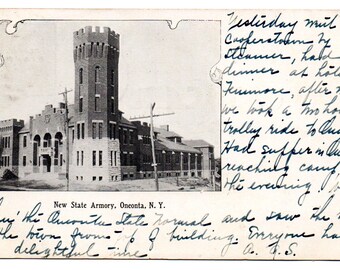 Yesterday
Cooperstown by
steamer, had
dinner at hotel
Fenimore, after
we took a two hour
trolley ride to
Had supper in
reaching camp
the evening
New State Armory, Oneonta, N. Y.
the Oneonta State Normal and saw the
the town from of building. Everyone
delightful time A. C. S.